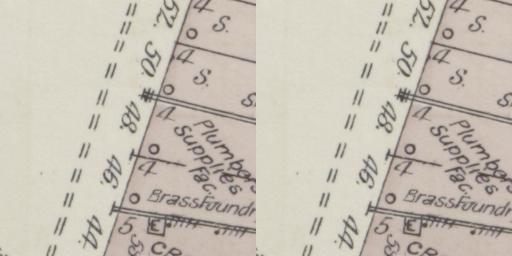 52.
4
S.
50.
4
S.
48.
4
Plumbers
Supplies
Fac.
46.
4
Brass Foundr
44.
5
E
38
52.
4
S.
50.
4
S.
48.
4
Plumbers
Supplies
Fac.
46.
4
Brass Foundr
44.
5
E
38